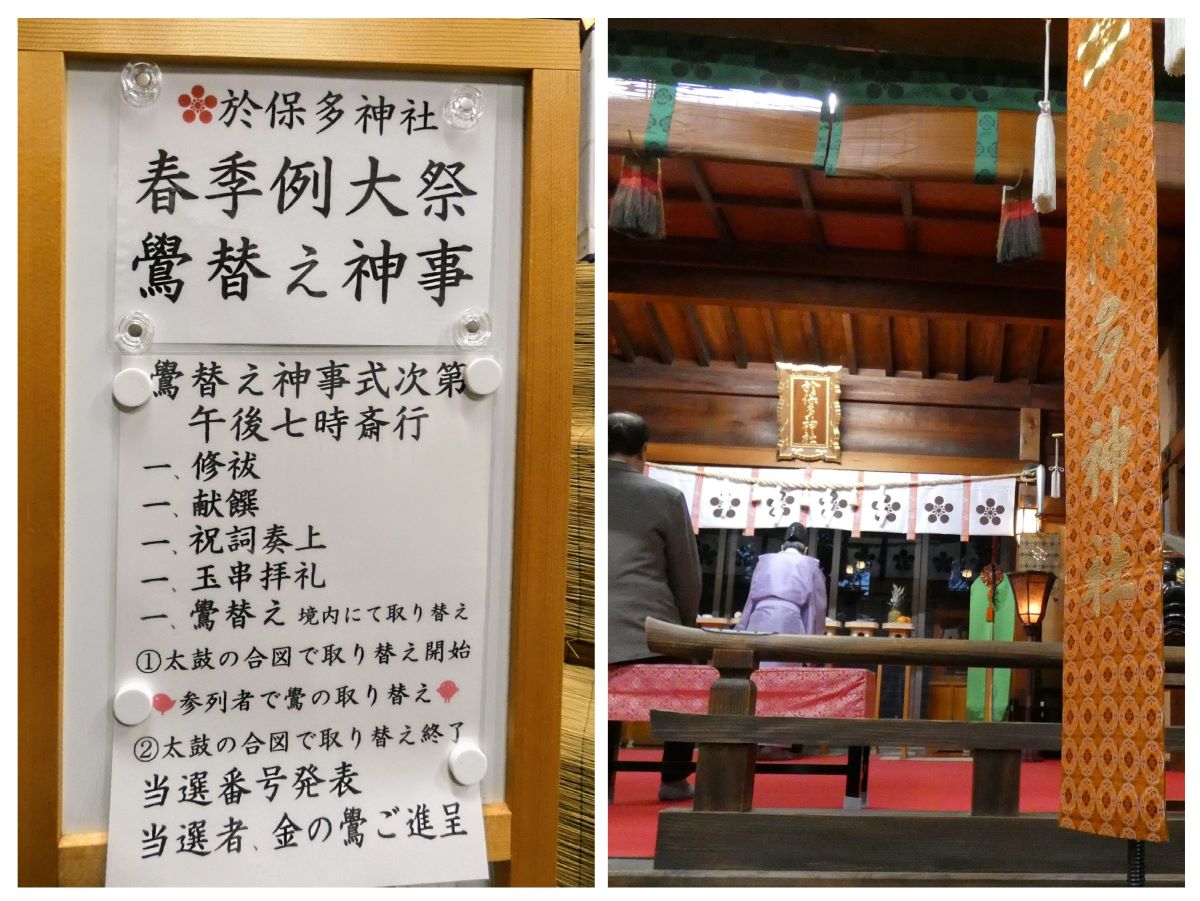 於保多神社
春季例大祭
鷽替え神事
鷽替え神事式次第
午後七時斎行
一、修祓
一、献饌
一、祝詞奏上
一、玉串拝礼
一、鷽替え 境内にて取り替え
①太鼓の合図で取り替え開始
参列者で鷽の取り替え
②太鼓の合図で取り替え終了
当選番号発表
当選者、金の鷽ご進呈
於保多神社
於保多神社